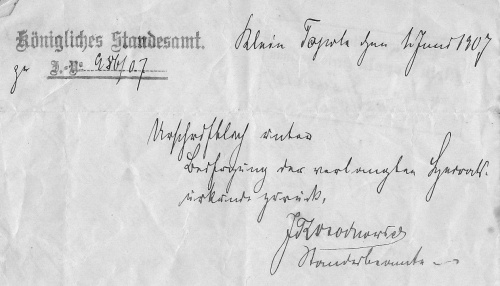 Königliches Standesamt.
zu J.-No 986/07
Klein Topola den 1. Juni 1907
Urschriftlich unter
Beifügung der verlangten Heirats-
urkunde zurück.
Standesbeamte